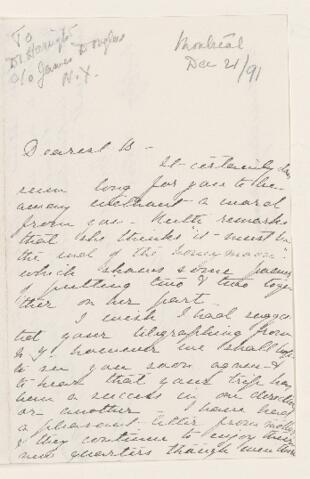 To
Dr Harington
c/o James Douglas
N.Y.
Montreal
Dec 21/91
Dearest B -
It certainly does
seem long for you to be
away without a word
from you - Ruth remarks
that she thinks "it must be
the end of the honeymoon"
which shows some power
of putting two & two toge
ther on her part.
I wish I had
not your telegraphing from
N.Y. however we shall hope
to see you soon again &
to hear that your trip has
been a success in one direction
or another - I have had
a pleasant letter from mother
& they continue to enjoy their
new quarters though